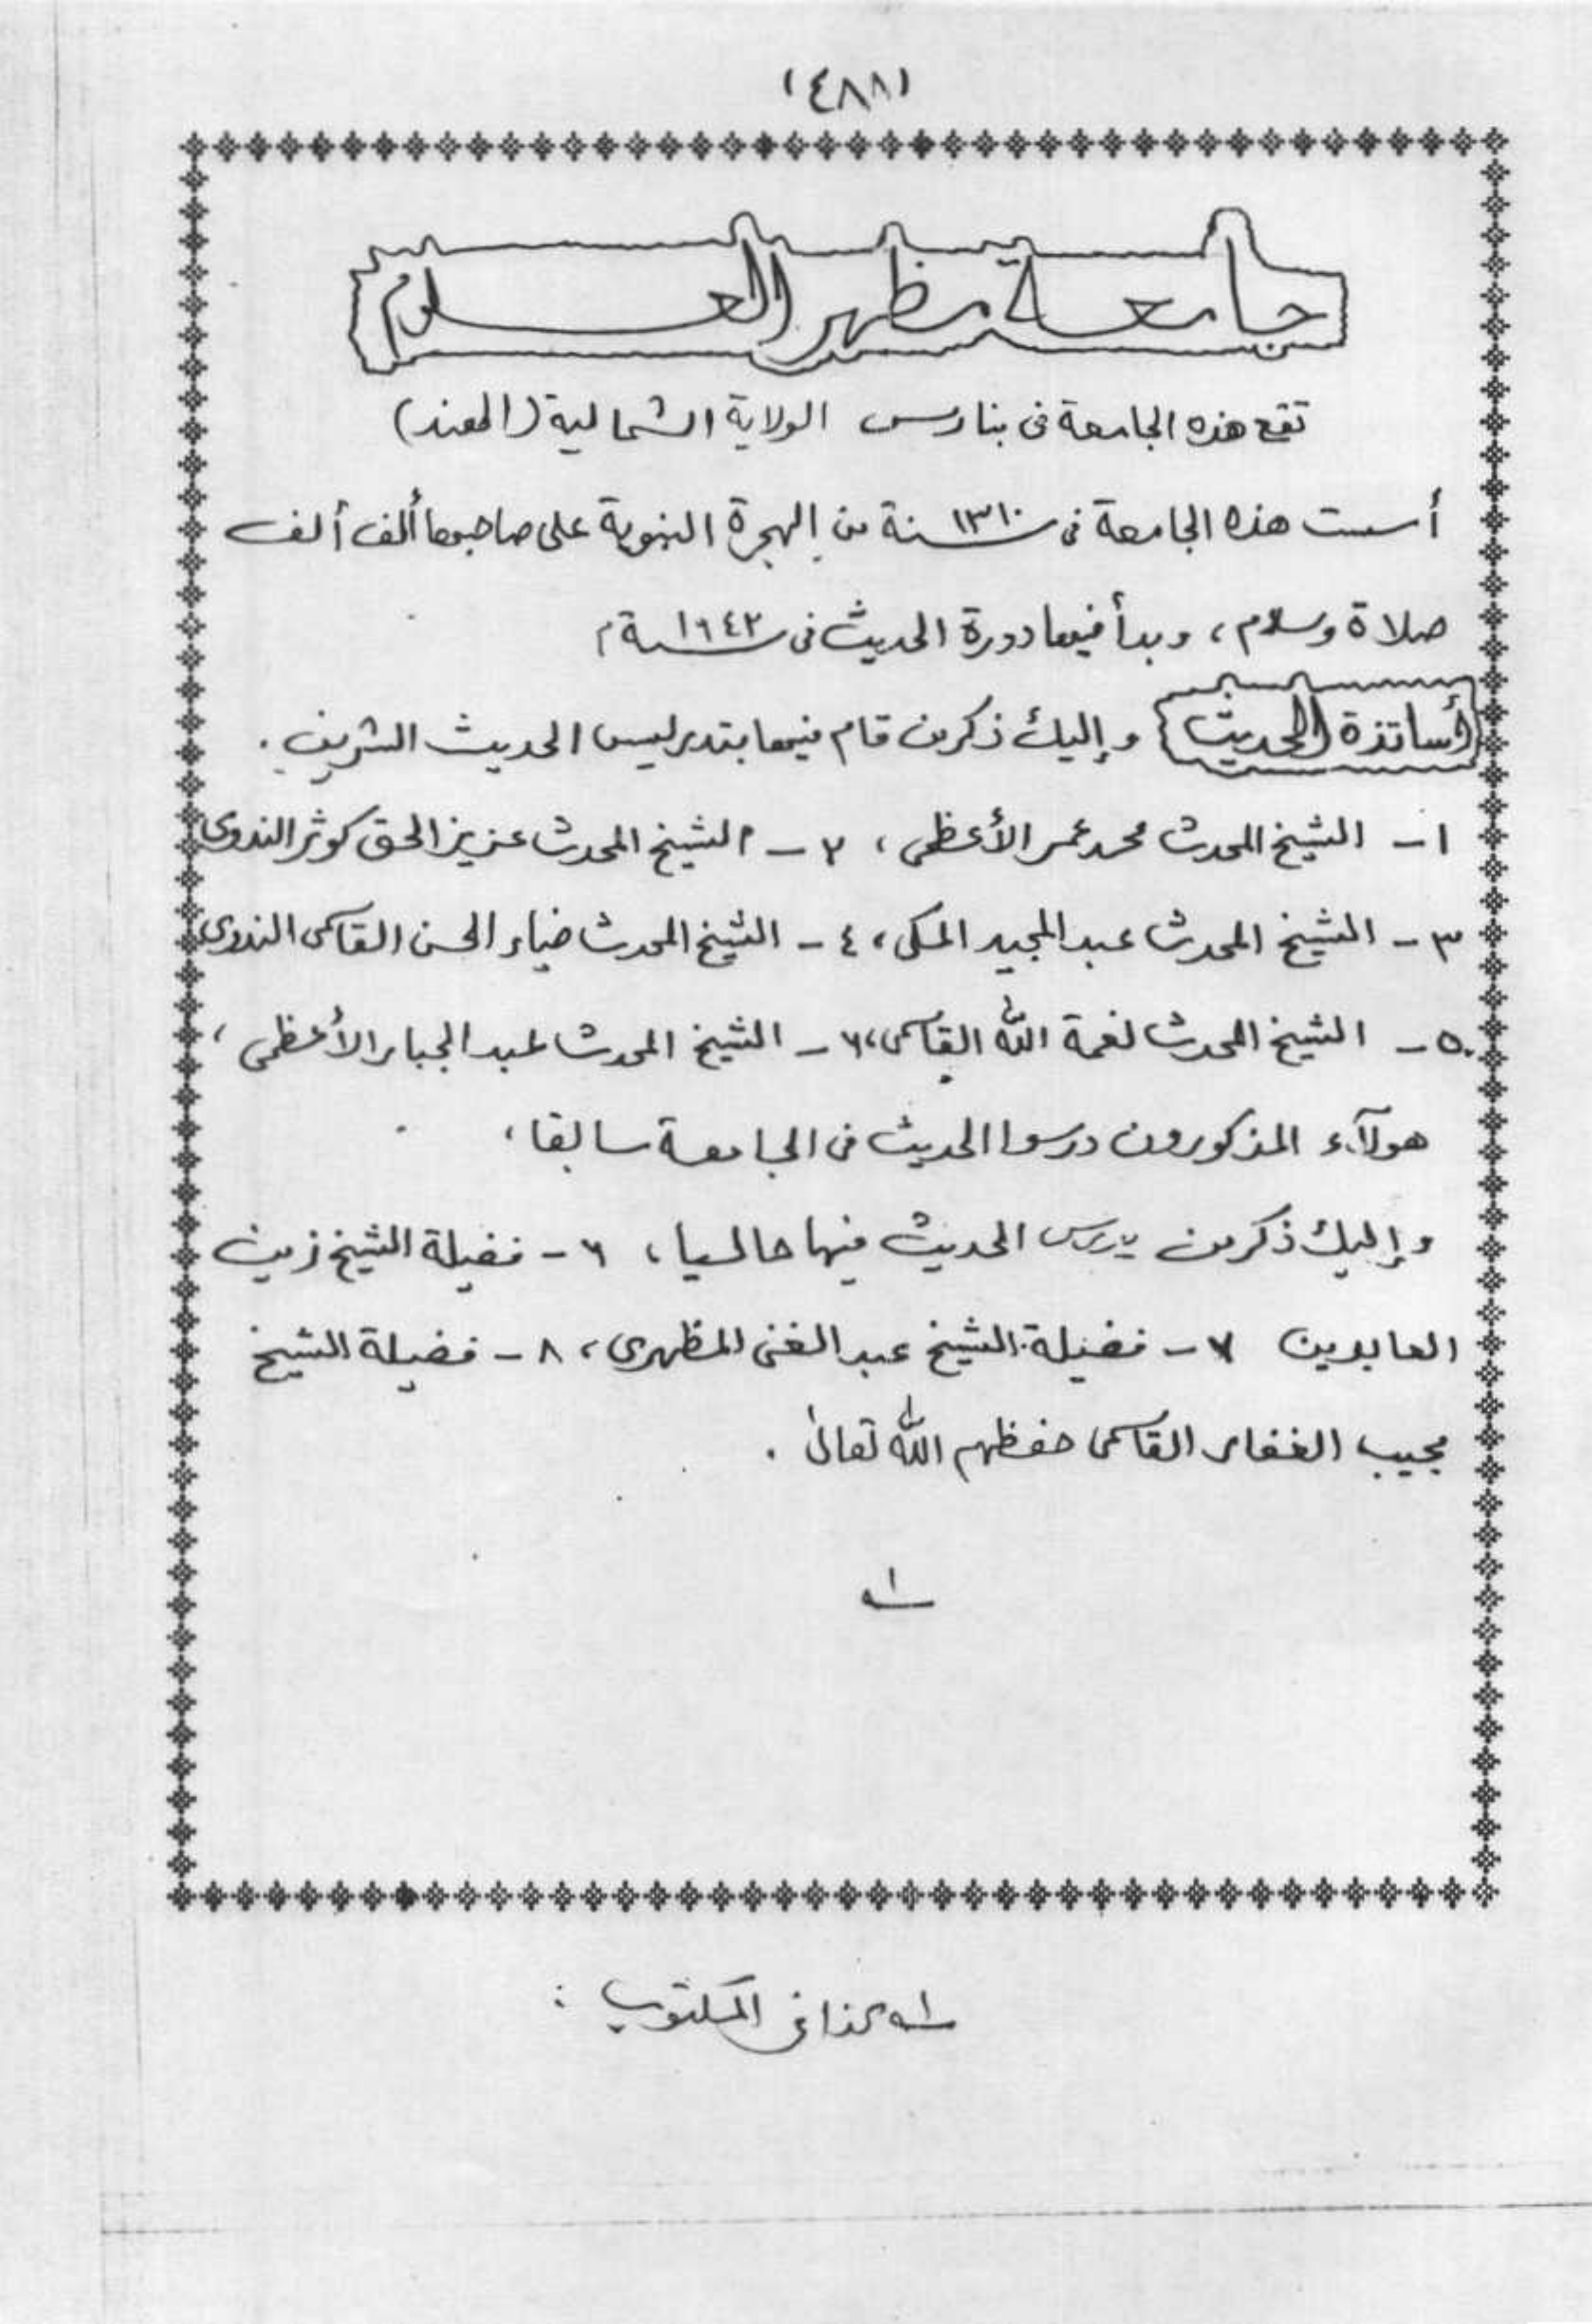 (٤٨٨)
جامعة مظهر العلوم
تقع هذه الجامعة في بنارس الولاية الشمالية (الهند)
أسست هذه الجامعة في سنة ١٣١٠ من الهجرة النبوية على صاحبها ألف ألف
صلاة وسلام، وبدأ فيها دورة الحديث في سنة ١٩٤٢م
أساتذة الحديث وإليك ذكر من قام فيها بتدريس الحديث الشريف.
١- الشيخ المحدث محمد عمر الأعظمى، ٢- الشيخ المحدث عزيز الحق كوثر الندوى
٣- الشيخ المحدث عبد المجيد المكى، ٤- الشيخ المحدث ضياء الحسن القاسمى الندوى
٥- الشيخ المحدث نعمة الله القاسمى، ٦- الشيخ المحدث عبد الجبار الأعظمى،
هولآء المذكورون درسوا الحديث في الجامعة سابقا،
وإليك ذكر من يدرس الحديث فيها حاليا، ٦- فضيلة الشيخ زين
العابدين ٧- فضيلة الشيخ عبد الغنى المظهرى، ٨- فضيلة الشيخ
مجيب الغفار القاسمى حفظهم الله تعالىٰ.
١ـه
١ـه كذا في المكتوب: